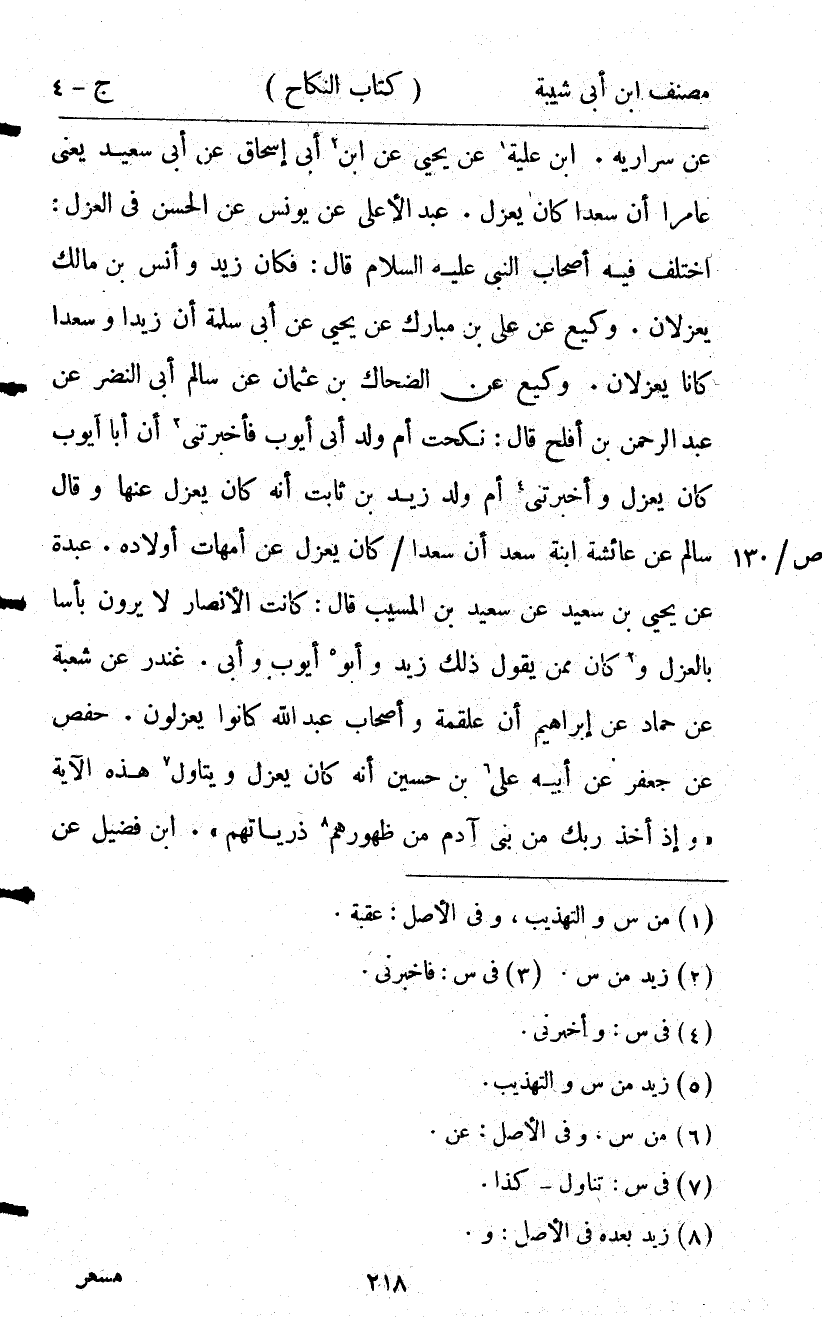 مصنف ابن أبى شيبة ( كتاب النكاح ) ج - ٤
عن سراريه . ابن علية١ عن يحيى عن ابن٢ أبى إسحاق عن أبى سعيد يعنى
عامرا أن سعدا كان يعزل . عبد الأعلى عن يونس عن الحسن فى العزل :
اختلف فيه أصحاب النبى عليه السلام قال : فكان زيد و أنس بن مالك
يعزلان . وكيع عن على بن مبارك عن يحيى عن أبى سلمة أن زيدا و سعدا
كانا يعزلان . وكيع عن الضحاك بن عثمان عن سالم أبى النضر عن
عبد الرحمن بن أفلح قال : نكحت أم ولد أبى أيوب فأخبرتنى٣ أن أبا أيوب
كان يعزل و أخبرتنى٤ أم ولد زيد بن ثابت أنه كان يعزل عنها و قال
سالم عن عائشة ابنة سعد أن سعدا / كان يعزل عن أمهات أولاده . عبدة
ص / ١٣٠
عن يحيى بن سعيد عن سعيد بن المسيب قال : كانت الأنصار لا يرون بأسا
بالعزل و٢ كان ممن يقول ذلك زيد و أبو٥ أيوب و أبى . غندر عن شعبة
عن حماد عن إبراهيم أن علقمة و أصحاب عبد الله كانوا يعزلون . حفص
عن جعفر عن أبيه على٦ بن حسين أنه كان يعزل و يتاول٧ هذه الآية
« و إذ أخذ ربك من بنى آدم من ظهورهم٨ ذرياتهم » . ابن فضيل عن
(١) من س و التهذيب ، و فى الأصل : عقبة .
(٢) زيد من س . (٣) فى س : فاخبرنى .
(٤) فى س : و أخبرنى .
(٥) زيد من س و التهذيب .
(٦) من س ، و فى الأصل : عن .
(٧) فى س : تناول - كذا .
(٨) زيد بعده فى الأصل : و .
٢١٨ مسهر